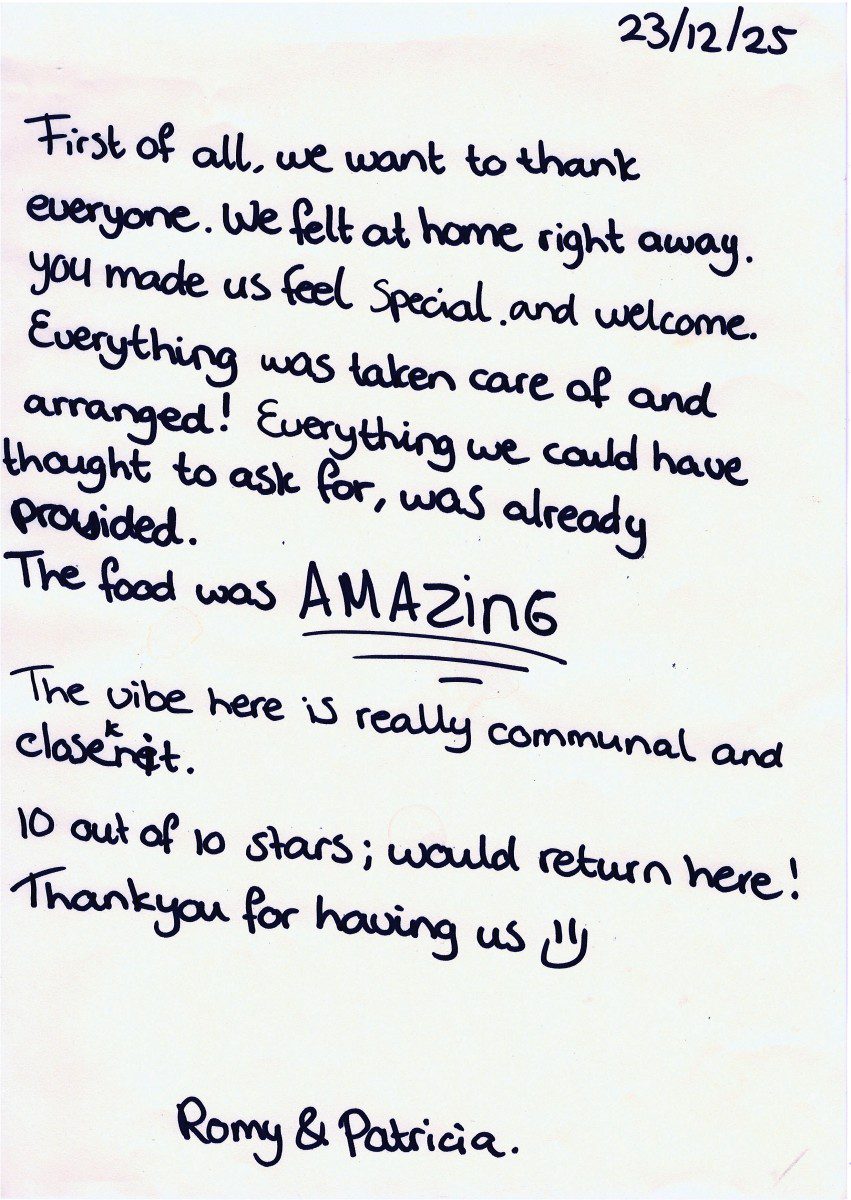 23/12/25
First of all, we want to thank
everyone. We felt at home right away.
you made us feel special. and welcome.
Everything was taken care of and
arranged! Everything we could have
thought to ask for, was already
provided.
The food was AMAZinG
The vibe here is really communal and
closeknit.
10 out of 10 stars; would return here!
Thankyou for having us
Romy & Patricia.